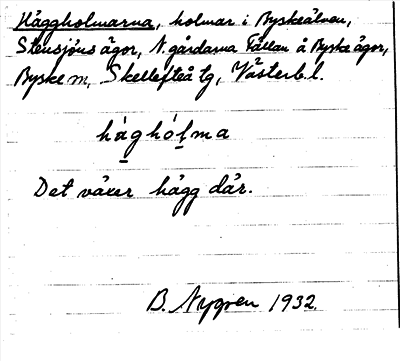 Häggholmarna, holmar i Byskeälven,
Stensjöns ägor, N. gårdarna Fällan å Byske ägor,
Byske sn, Skellefteå tg, Västerb. l.
hághólma
Det växer hägg där.
B. Nygren 1932.